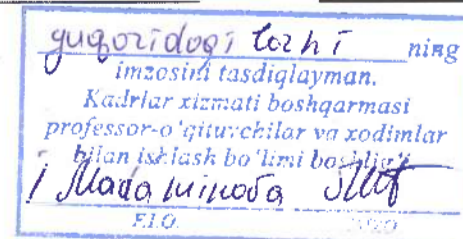 yuqoridagi ning
imzosini tasdiqlayman.
Kadrlar xizmati boshqarmasi
professor-o‘qituvchilar va xodimlar
bilan ishlash bo‘limi boshlig‘i
Madaminova
F.I.O.